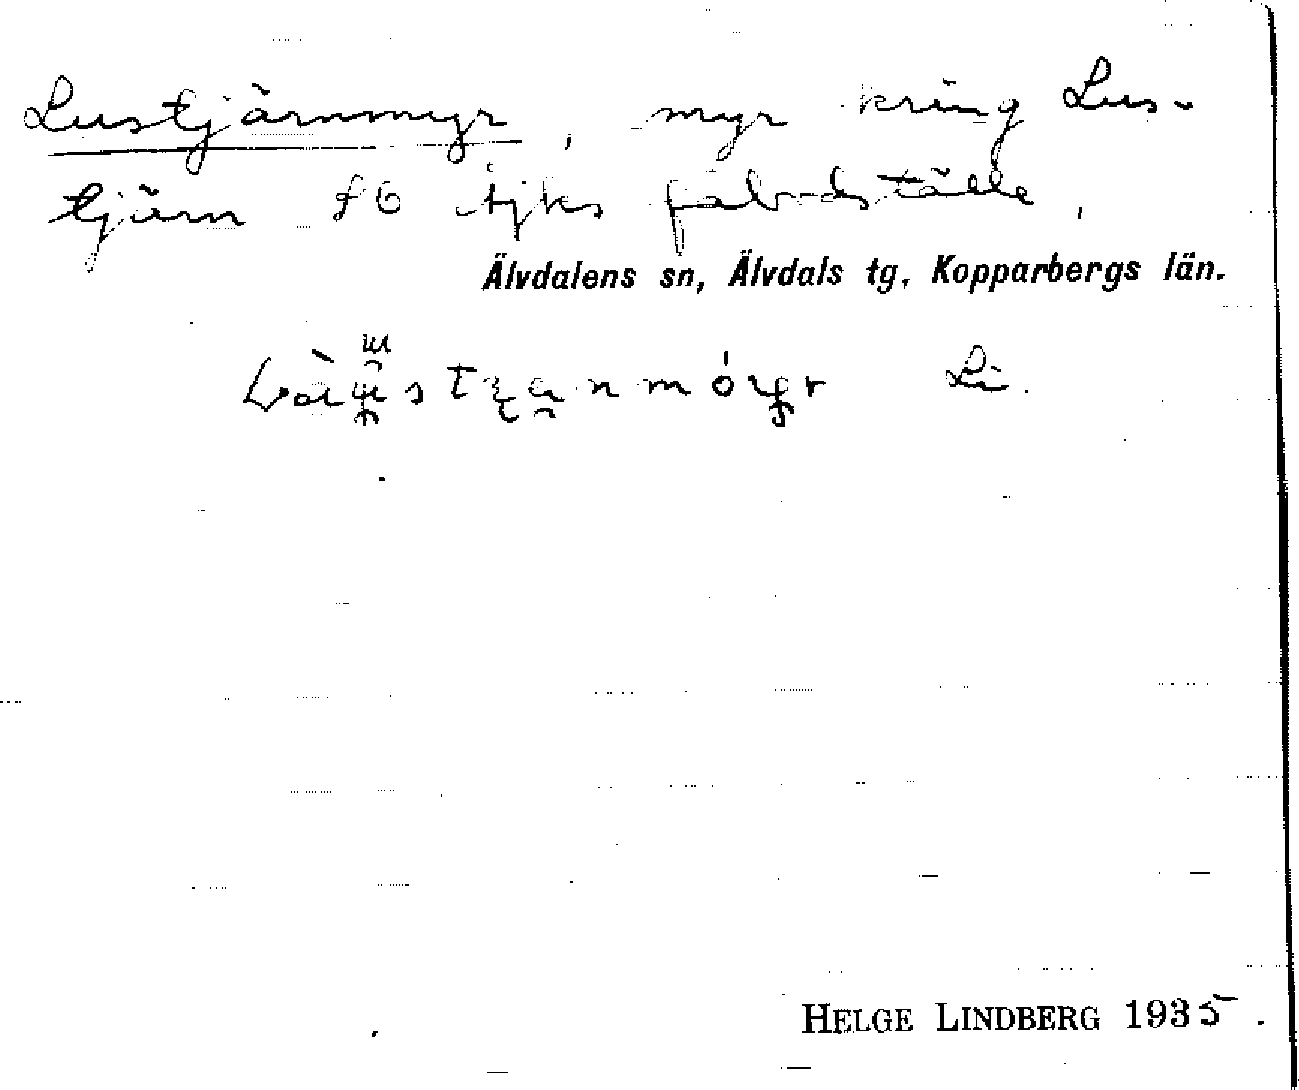 Lustjärnmyr, myr kring Lus-
tjärn SO Itjks fäbodställe,
Älvdalens sn, Älvdals tg, Kopparbergs län.
Li.
HELGE LINDBERG 1935.